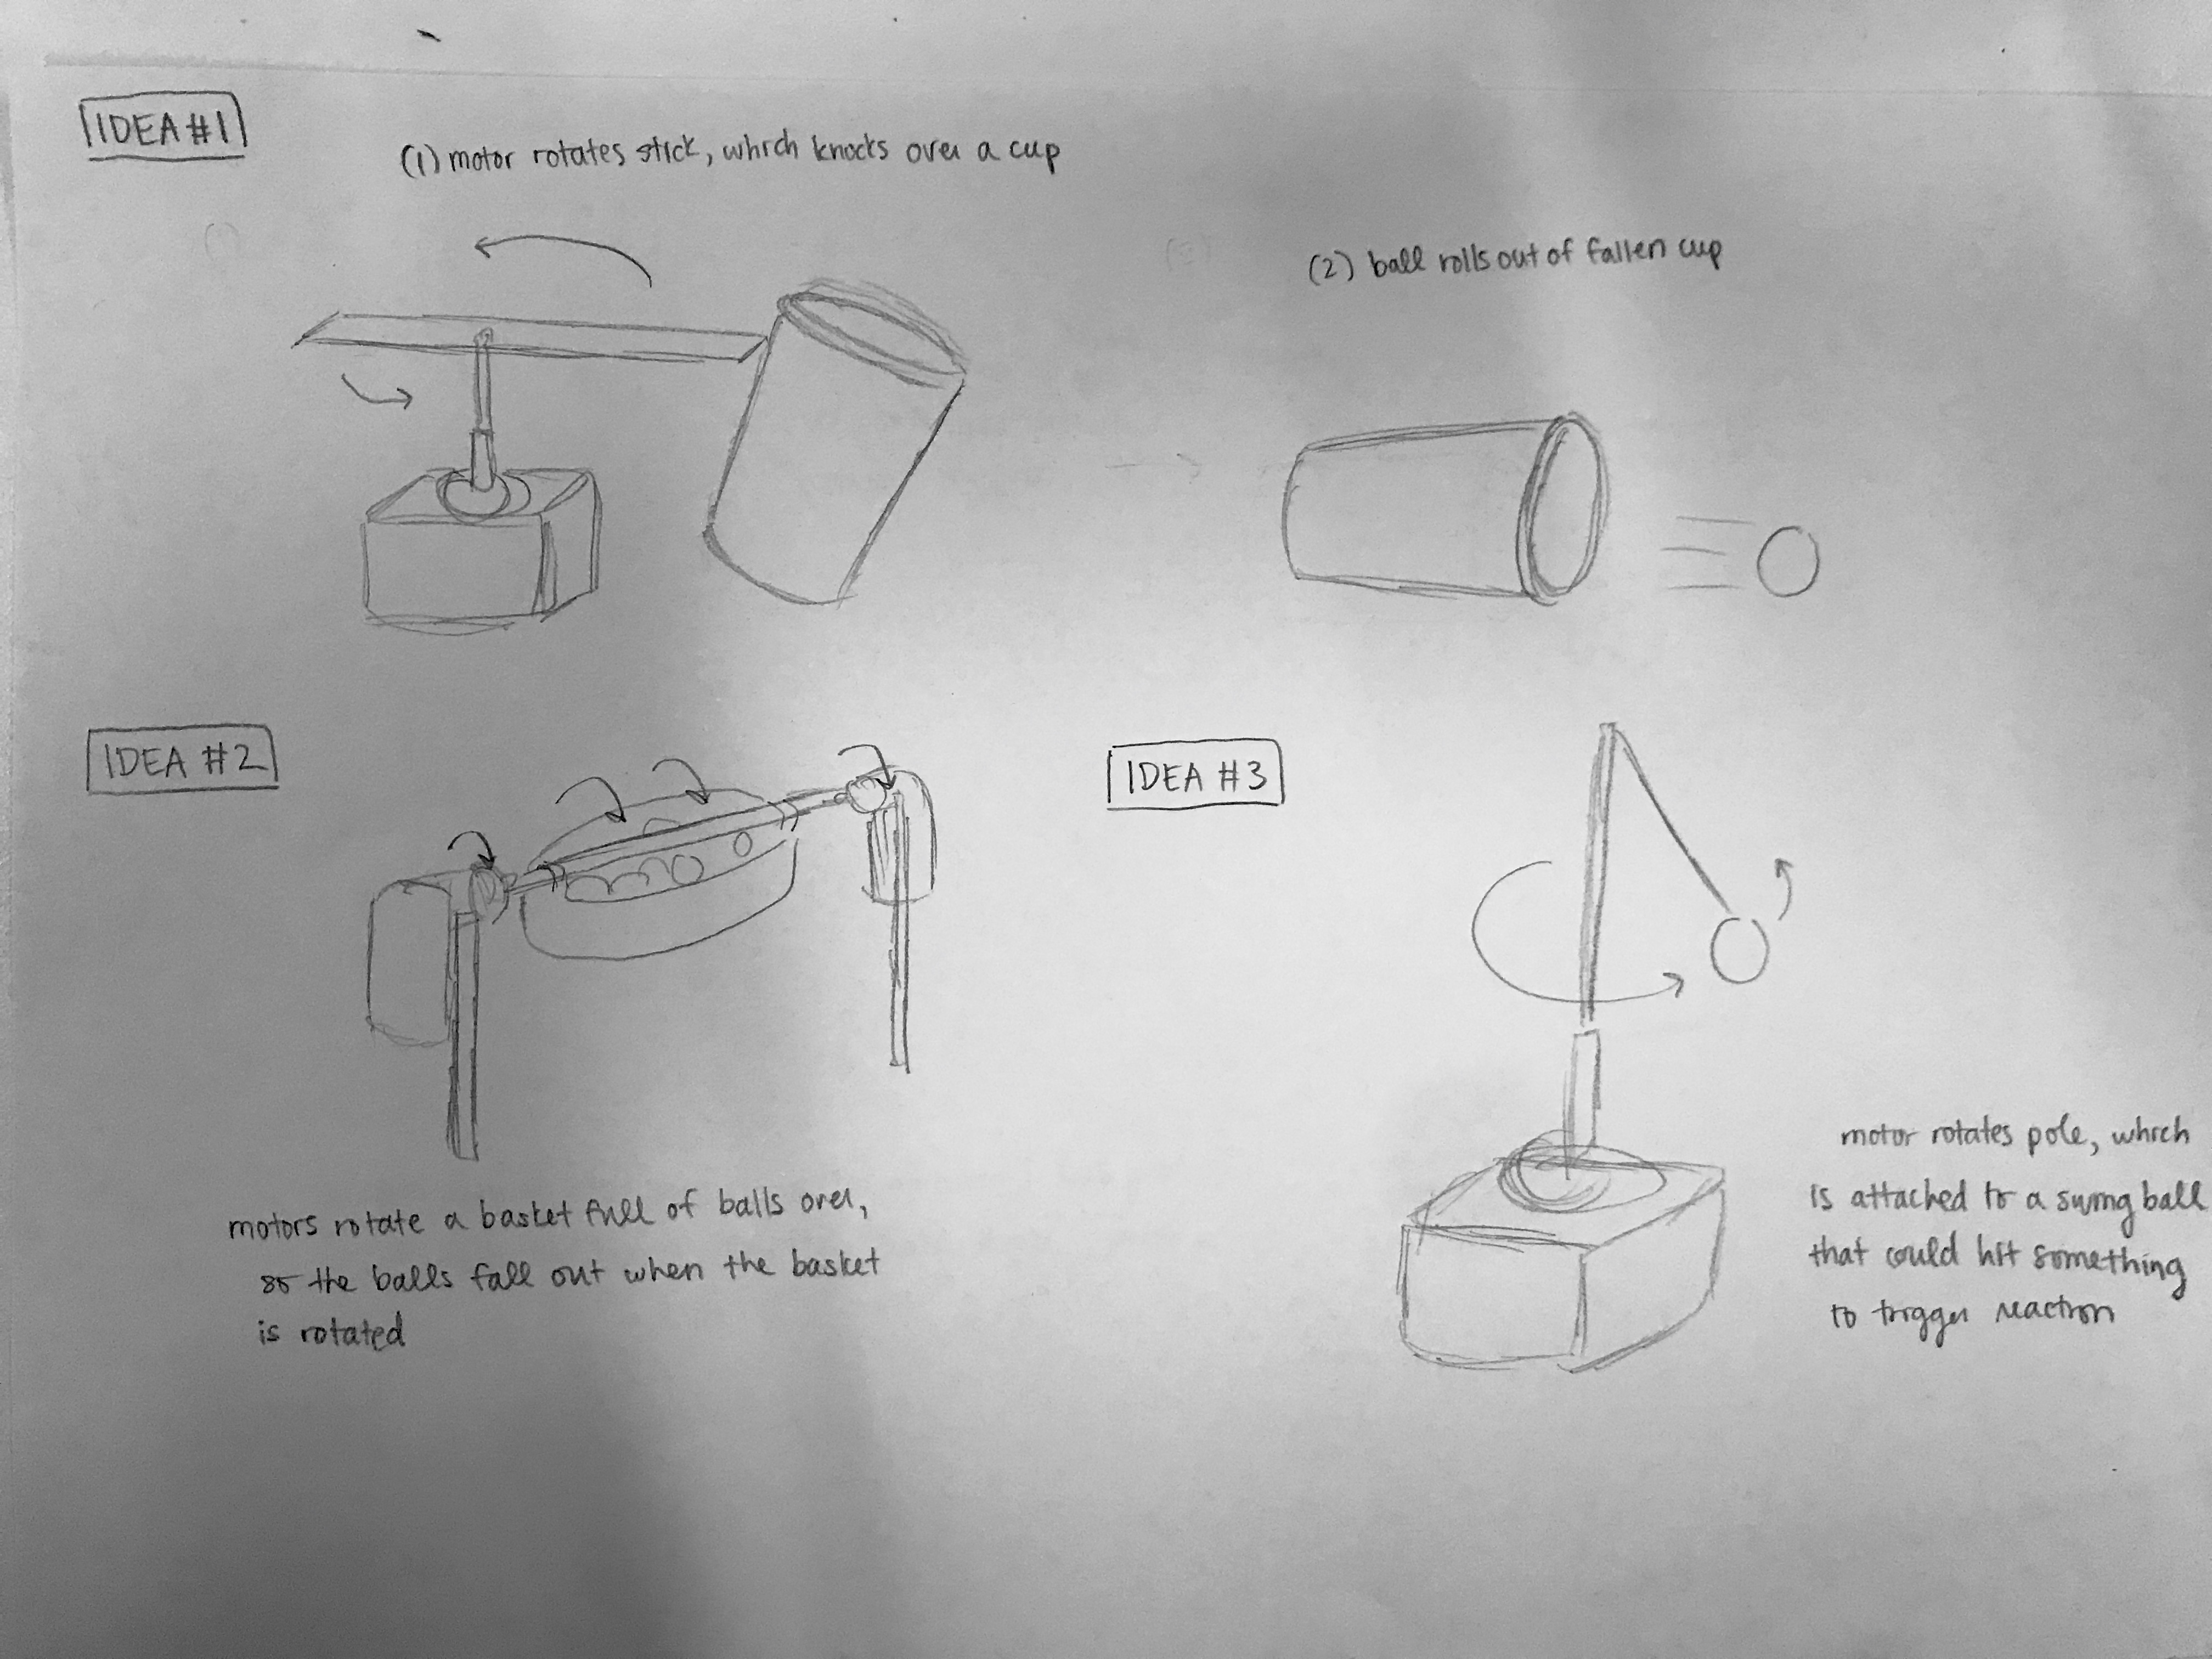 IDEA #1
(1) motor rotates stick, which knocks over a cup
(2) ball rolls out of fallen cup
IDEA #2
motors rotate a basket full of balls over,
so the balls fall out when the basket
is rotated
IDEA #3
motor rotates pole, which
is attached to a swing ball
that could hit something
to trigger reaction